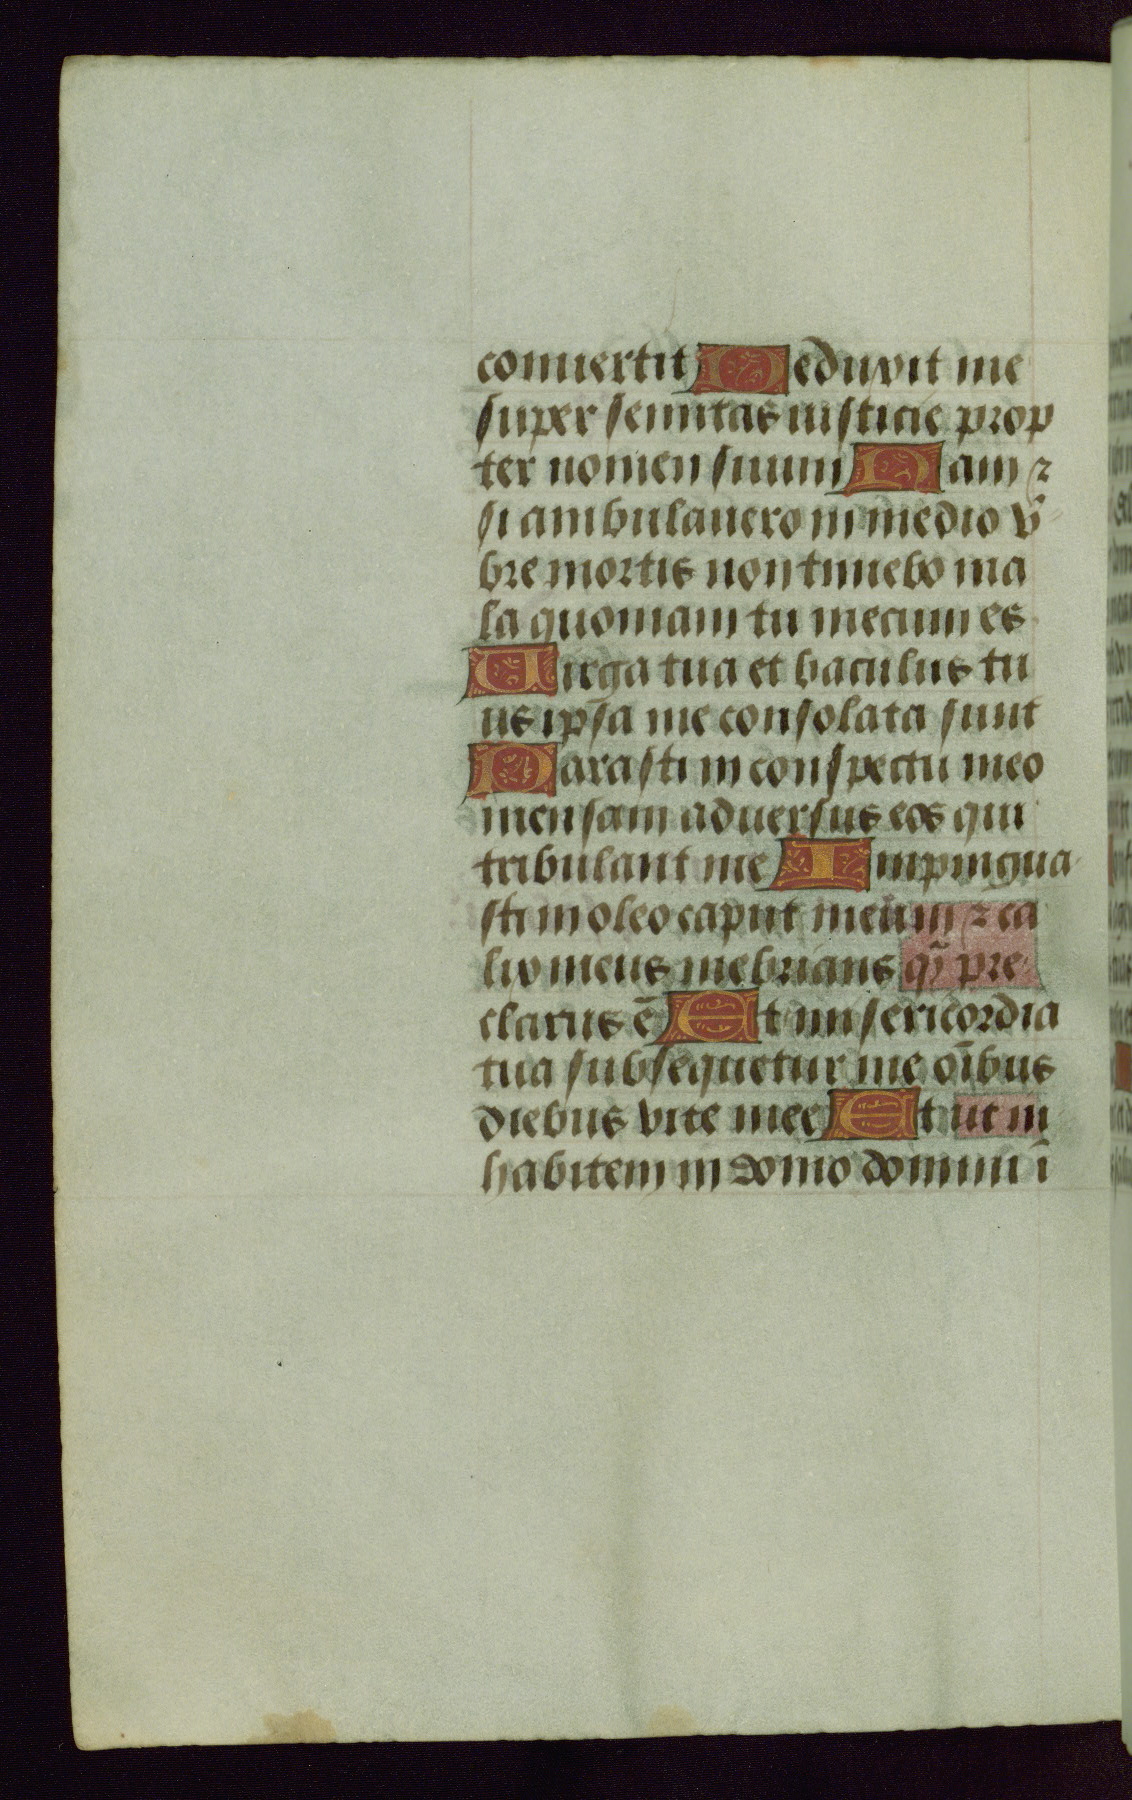 conuertit Deduxit me
super semitas iusticie prop
ter nomen suum Nam ⁊
si ambulauero in medio v̄
bre mortis non timebo ma
la quoniam tu mecum es
Uirga tua et baculus tu
us ipsa me consolata sunt
Parasti in conspectu meo
mensam aduersus eos qui
tribulant me Impingua
sti in oleo caput meum ⁊ ca
lix meus inebrians q̄ȝ pre
clarus ē Et misericordia
tua subsequetur me oībus
diebus vite mee Et ut in
habitem in domo domini ī